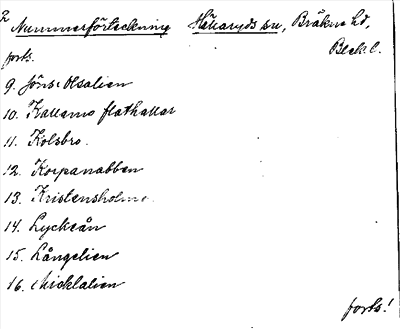 2 Nummerförteckning Hällaryds sn, Bräkne hd,
Blek. l.
forts.
9. Jöns-Olsalien
10. Kallamo flathallar
11. Kolsbro.
12. Korpanabben
13. Kristensholme
14. Lyckeån
15. Långelien
16. Micklalien
forts!